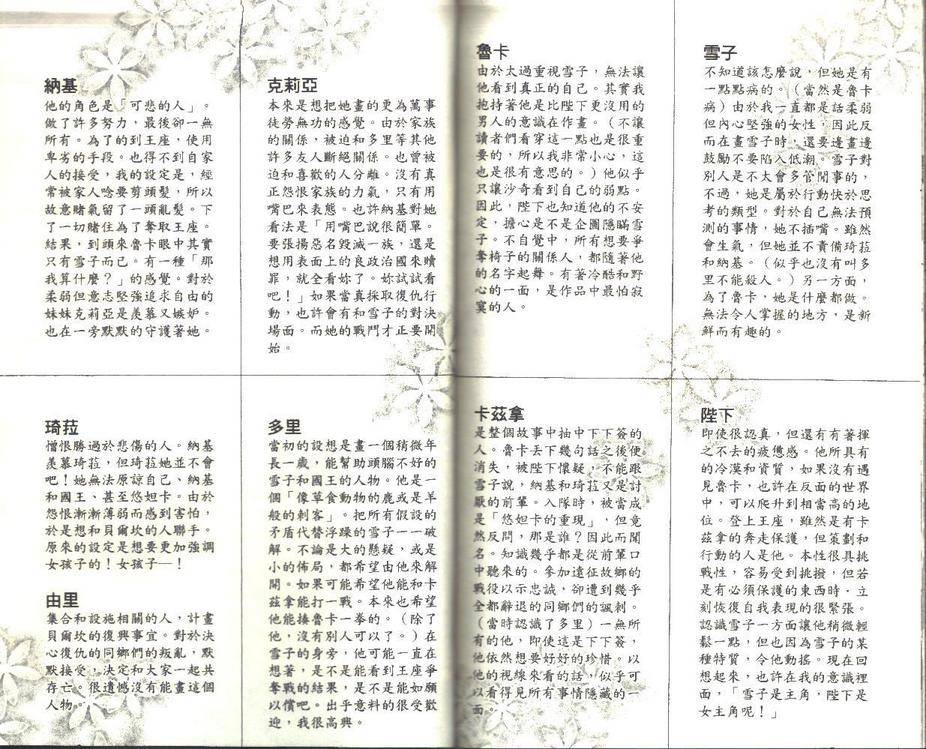 納基
他的角色是「可悲的人」。
做了許多努力，最後卻一無
所有。為了的到王座，使用
卑劣的手段。也得不到自家
人的接受，我的設定是，經
常被家人唸要剪頭髮，所以
故意賭氣留了一頭亂髮。下
了一切賭住為了奪取王座。
結果，到頭來魯卡眼中其實
只有雪子而已。有一種「那
我算什麼？」的感覺。對於
柔弱但意志堅強追求自由的
妹妹克莉亞是羨慕又嫉妒。
也在一旁默默的守護著她。
克莉亞
本來是想把她畫的更為萬事
徒勞無功的感覺。由於家族
的關係，被迫和多里等其他
許多友人斷絕關係。也曾被
迫和喜歡的人分離。沒有真
正怨恨家族的力氣，只有用
嘴巴來表態。也許納基對她
看法是「用嘴巴說很簡單。
要張揚惡名毀滅一族，還是
想用表面上的良政治國來贖
罪，就全看妳了。妳試試看
吧！」如果當真採取復仇行
動，也許會有和雪子的對決
場面。而她的戰鬥才正要開
始。
魯卡
由於太過重視雪子，無法讓
他看到真正的自己。其實我
抱持著他是比陛下更沒用的
男人的意識在作畫。（不讓
讀者們看穿這一點也是很重
要的，所以我非常小心，這
也是很有意思的。）他似乎
只讓沙奇看到自己的弱點。
因此，陛下也知道他的不安
定，擔心是不是企圖隱瞞雪
子。不自覺中，所有想要爭
奪椅子的關係人，都隨著他
的名字起舞。有著冷酷和野
心的一面，是作品中最怕寂
寞的人。
雪子
不知道該怎麼說，但她是有
一點點病的。（當然是魯卡
病）由於我一直都是話柔弱
但內心堅強的女性，因此反
而在畫雪子時，還要邊畫邊
鼓勵不要陷入低潮。雪子對
別人是不太會多管閒事的，
不過，她是屬於行動快於思
考的類型。對於自己無法預
測的事情，她不插嘴。雖然
會生氣，但她並不責備琦菈
和納基。（似乎也沒有叫多
里不能殺人。）另一方面，
為了魯卡，她是什麼都做。
無法令人掌握的地方，是新
鮮而有趣的。
琦菈
憎恨勝過於悲傷的人。納基
羨慕琦菈，但琦菈她並不會
吧！她無法原諒自己、納基
和國王、甚至悠妲卡。由於
怨恨漸漸薄弱而感到害怕，
於是想和貝爾坎的人聯手。
原來的設定是想要更加強調
女孩子的！女孩子─！
由里
集合和設施相關的人，計畫
貝爾坎的復興事宜。對於決
心復仇的同鄉們的叛亂，默
默接受，決定和大家一起共
存亡。很遺憾沒有能畫這個
人物。
多里
當初的設想是畫一個稍微年
長一歲，能幫助頭腦不好的
雪子和國王的人物。他是一
個「像草食動物的鹿或是羊
般的刺客」。把所有假設的
矛盾代替浮躁的雪子一一破
解。不論是大的懸疑，或是
小的佈局，都希望由他來解
開。如果可能希望他能和卡
茲拿能打一戰。本來也希望
他能揍魯卡一拳的。（除了
他，沒有別人可以了。）在
雪子的身旁，他可能一直在
想著，是不是能看到王座爭
奪戰的結果，是不是能如願
以償吧。出乎意料的很受歡
迎，我很高興。
卡茲拿
是整個故事中抽中下下簽的
人。魯卡丟下幾句話之後便
消失，被陛下懷疑，不能跟
雪子說，納基和琦菈又是討
厭的前輩。入隊時，被當成
是「悠妲卡的重現」，但竟
然反問，那是誰？因此而聞
名。知識幾乎都是從前輩口
中聽來的。參加遠征故鄉的
戰役以示忠誠，卻遭到幾乎
全都辭退的同鄉們的諷刺。
（當時認識了多里）一無所
有的他，即使這是下下簽，
他依然想要好好的珍惜。以
他的視線來看的話，似乎可
以看得見所有事情隱藏的一
面。
陛下
即使很認真，但還有有著揮
之不去的疲憊感。他所具有
的冷漠和資質，如果沒有遇
見魯卡，也許在反面的世界
中，可以爬升到相當高的地
位。登上王座，雖然是有卡
茲拿的奔走保護，但策劃和
行動的人是他。本性很具挑
戰性，容易受到挑撥，但若
是有必須保護的東西時，立
刻恢復自我表現的很緊張。
認識雪子一方面讓他稍微輕
鬆一點，但也因為雪子的某
種特質，令他動搖。現在回
想起來，也許在我的意識裡
面，「雪子是主角，陛下是
女主角呢！」